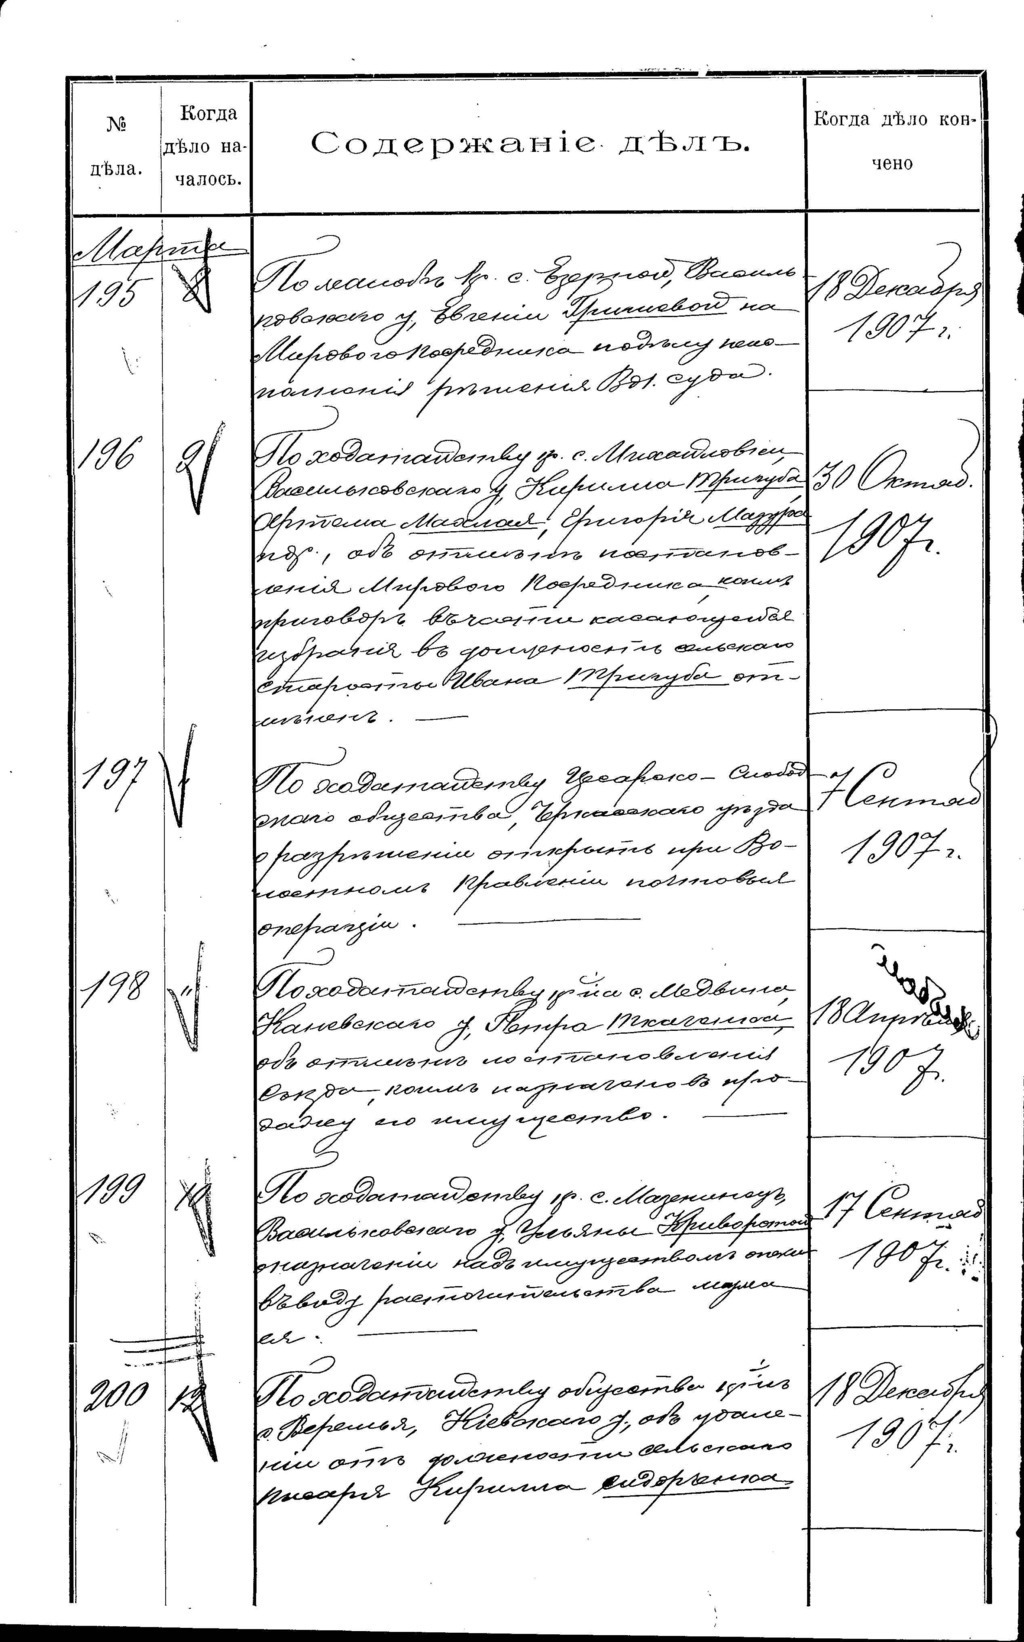 № дѣла.
Когда дѣло на-
чалось.
Содержаніе дѣлъ.
Когда дѣло кон-
чено
Марта
195 8 По жалобѣ кр. с. Езерной, Василь-
ковскаго у, Евгеніи Гричневой на
Мирового Посредника по дѣлу неис-
полненія рѣшенія Вол. суда.
18 Декабря
1907 г.
196 9 По ходатайству кр. с. Михайловки,
Васильковскаго у, Кирилла Тригуба
Артема Махлая, Григорія Мазура
и др., объ отмѣнѣ постанов-
ленія Мирового Посредника, коимъ
приговоръ въ части касающейся
избранія въ должность сельскаго
старосты Ивана Тригуба от-
мѣненъ.
30 Октяб.
1907 г.
197 По ходатайству Цесарско-Слобод-
скаго общества, Черкасскаго уѣзда
о разрѣшеніи открыть при Во-
лостномъ Правленіи почтовыя
операціи.
7 Сентяб
1907 г.
198 По ходатайству кр-ина с. Медвина,
Каневскаго у, Петра Ткаченка,
объ отмѣнѣ постановленія
Съѣзда, коимъ назначено въ про-
дажу его имущество.
18 Апрѣля
1907 г.
199 10 По ходатайству кр. с. Мазепинецъ,
Васильковскаго у, Ульяны Криворотой
о назначеніи надъ имуществомъ опеки
въ виду расточительства мужа
ея.
17 Сентяб
1907 г.
200 12 По ходатайству общества кр-инъ
с. Веремья, Кіевскаго у, объ удале-
ніи отъ должности сельскаго
писаря Кирилла Сидоренка
18 Декабря
1907 г.